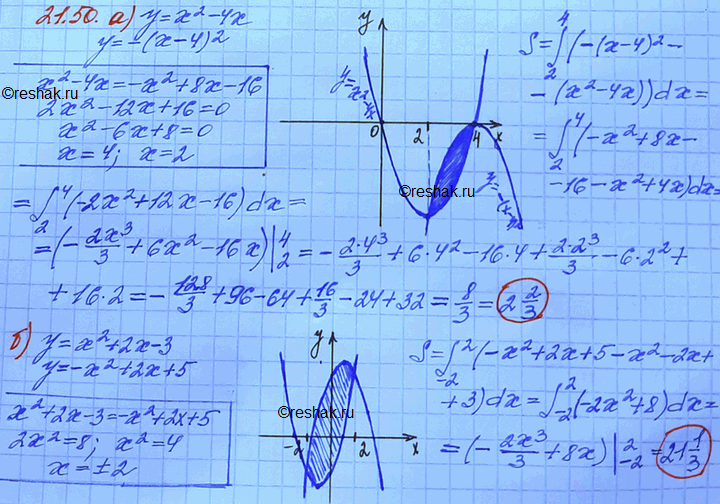 21.50. а) y=x²-4x
y=-(x-4)²
x²-4x=-x²+8x-16
2x²-12x+16=0
x²-6x+8=0
x=4; x=2
©reshak.ru
y
y=x²-4x
0
2
4
x
y=-(x-4)²
©reshak.ru
S=∫₂⁴(-(x-4)²-
-(x²-4x))dx=
=∫₂⁴(-x²+8x-
-16-x²+4x)dx
=∫₂⁴(-2x²+12x-16)dx=
=(-2x³/3+6x²-16x)|₂⁴=-2·4³/3+6·4²-16·4+2·2³/3-6·2²+
+16·2=-128/3+96-64+16/3-24+32=8/3=2 2/3
б) y=x²+2x-3
y=-x²+2x+5
x²+2x-3=-x²+2x+5
2x²=8; x²=4
x=±2
y
©reshak.ru
-2
2
x
S=∫₋₂²(-x²+2x+5-x²-2x+
+3)dx=∫₋₂²(-2x²+8)dx=
=(-2x³/3+8x)|₋₂²=21 1/3